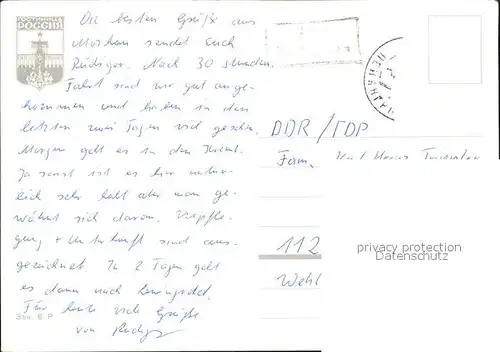 ГОСТИНИЦА
РОССИЯ
Die besten Grüße aus
Moskau sendet Euch
Rüdiger. Nach 30 stunden
Fahrt sind wir gut ange-
kommen und haben in den
letzten zwei Tagen viel gesehen.
Morgen geht es in den Kreml.
Ja sonst ist es hier
sehr kalt aber man ge-
wöhnt sich daran. Verpfle-
gung + Unterkunft sind aus-
gezeichnet. In 2 Tagen geht
es dann nach Leningrad.
Für heute viele Grüße
von Rüdiger
DDR / ГДР
Fam.
112
Wehl
privacy protection
Datenschutz